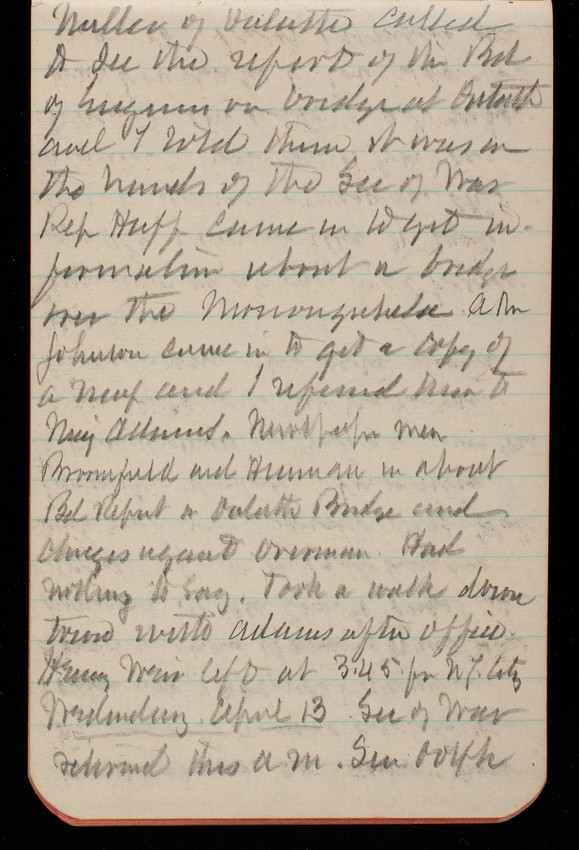 Miller of Duluth called
to see the report of the Bd
of Engineers on bridge at Duluth
and I told them it was in
the hands of the Sec of War
Rep Huff came in to get in-
formation about a bridge
over the Monongahela. A Mr
Johnson came in to get a copy of
a map and I referred him to
Maj Adams. Newspaper men
Broomfield and in about
Bd Report on Duluth Bridge and
charges against Overman. Had
nothing to say. Took a walk down
town with Adams after office.
Henry Weir left at 3.45 for N.Y. City
Wednesday April 13 Sec of War
returned this a m. Sen Dolph